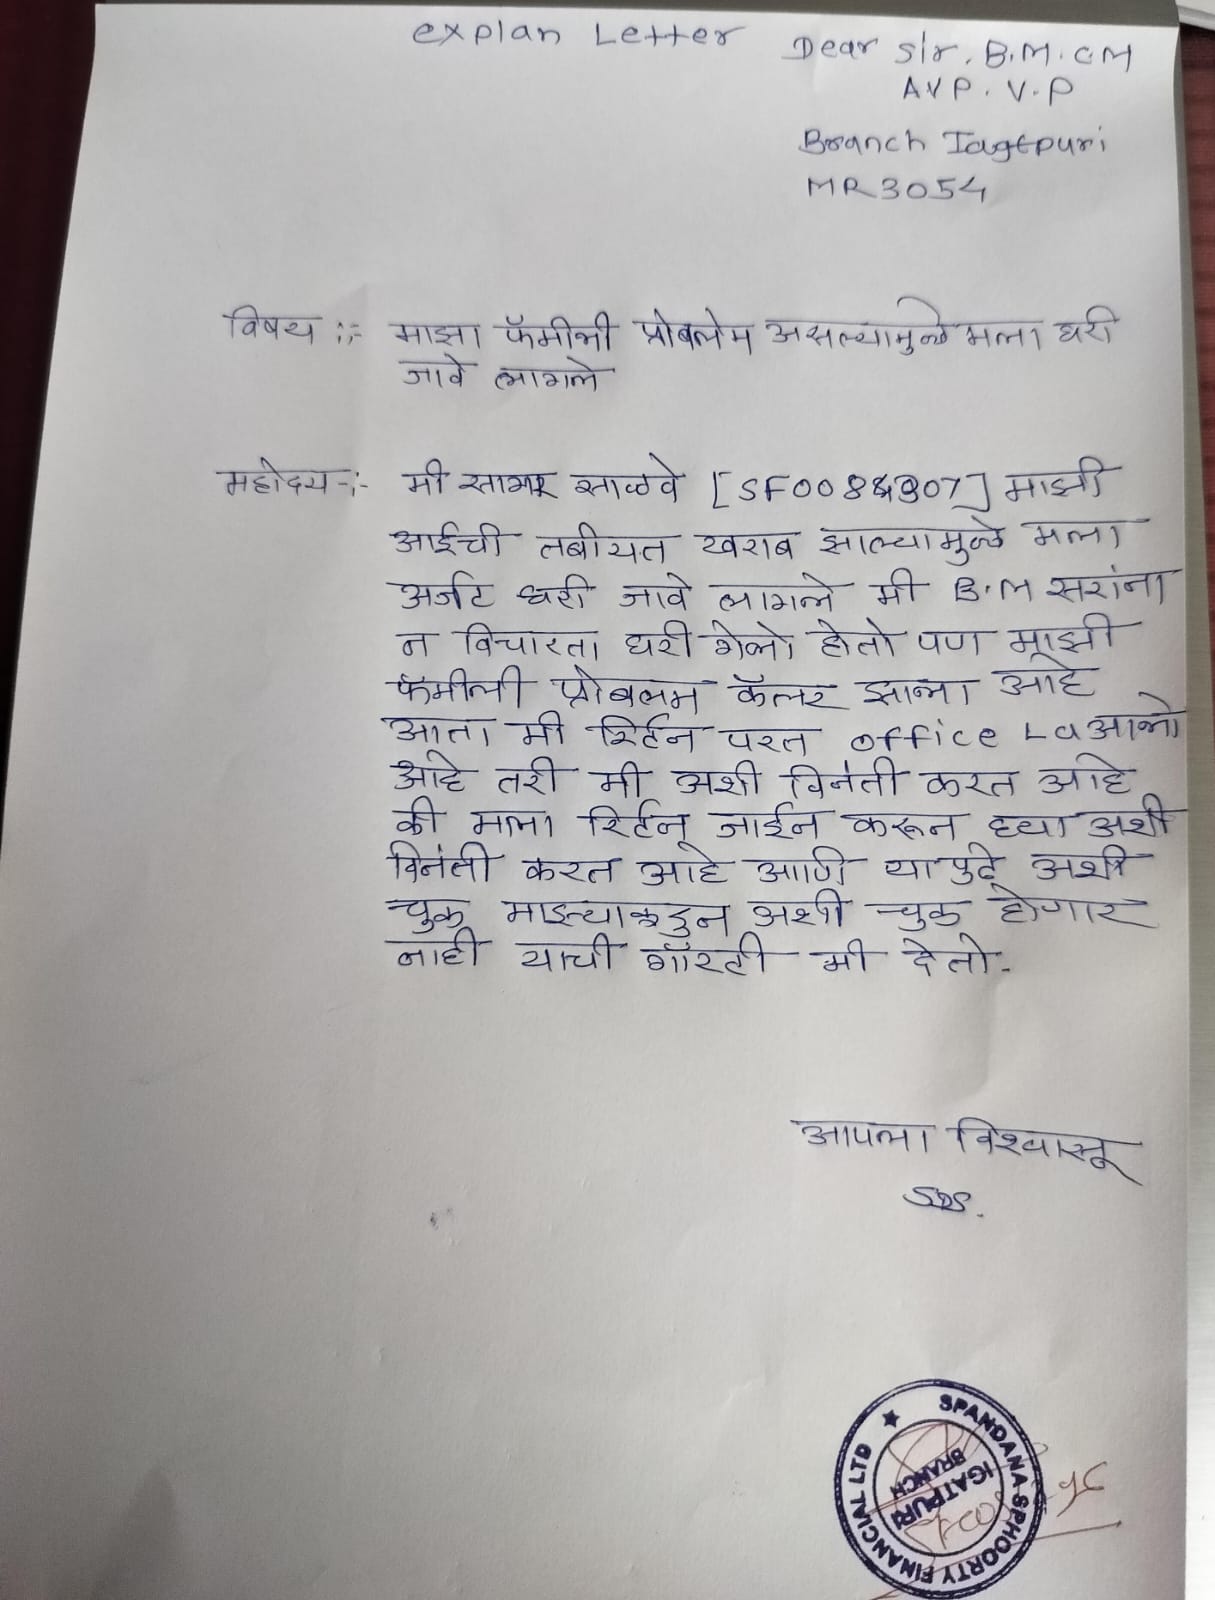 explan Letter
Dear sir. B.M. CM
AVP. V.P
Branch Iagtpuri
MR3054
विषय :- माझा फॅमीली प्रोबलेम असल्यामुळे मला घरी
जावे लागले
महोदय :- मी सागर साळवे [SF0084807] माझी
आईची तबीयत खराब झाल्यामुळे मला
अर्जट घरी जावे लागले मी B.M सरांना
न विचारता घरी गेलो होतो पण माझी
फॅमीली प्रोबलम कॅलर झाला आहे
आता मी रिर्टन परत office La आलो
आहे तरी मी अशी विनंती करत आहे
की मला रिर्टन जाईन करून घ्या अशी
विनंती करत आहे आणि या पुढे अशी
चुक माझ्याकडुन अशी चुक होणार
नाही याची गॅारटी मी देतो.
आपला विश्वासू
SDS.
SPANDANA SPHOORTY FINANCIAL LTD
IGATPURI
BRANCH